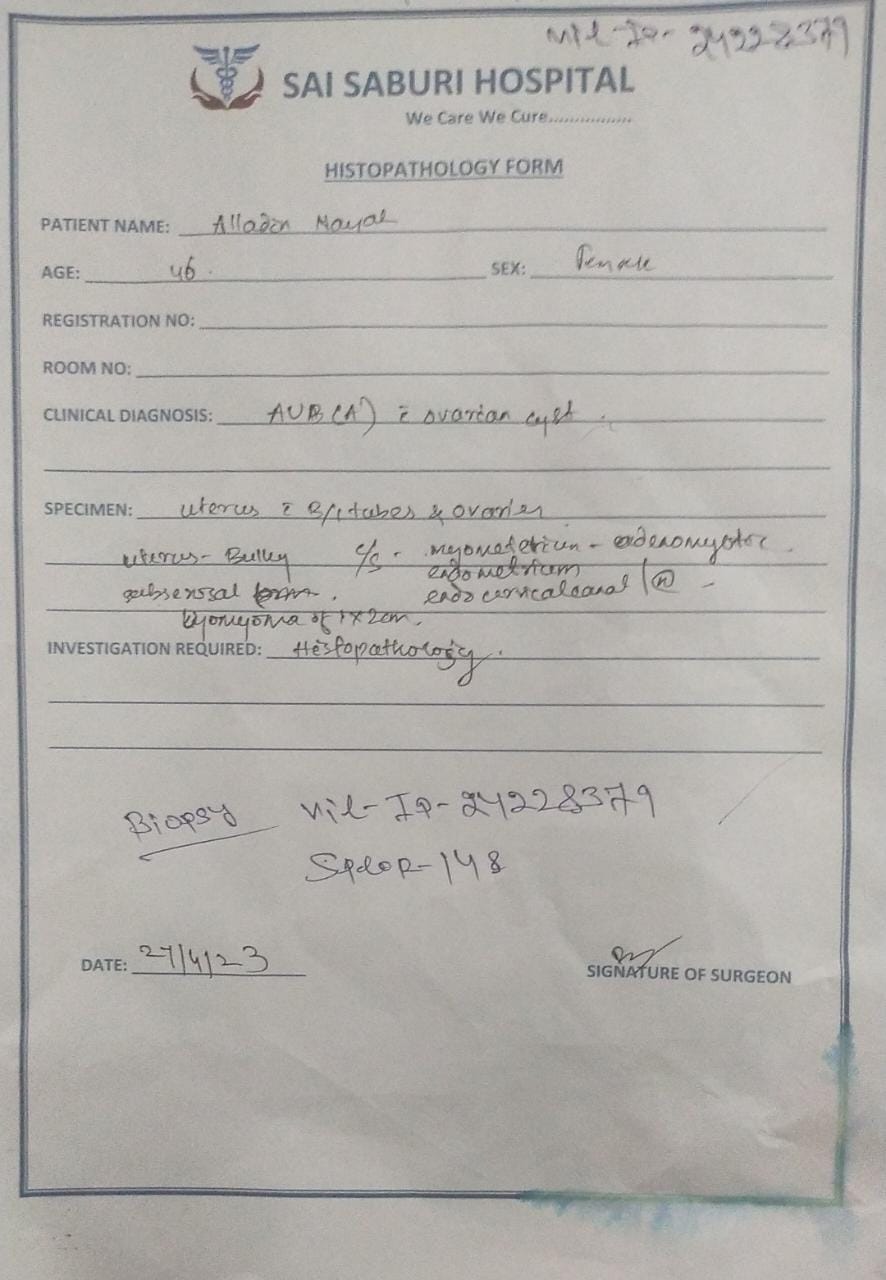 Vil-Ip-24228379
SAI SABURI HOSPITAL
We Care We Cure................
HISTOPATHOLOGY FORM
PATIENT NAME: Alladin Mayal
AGE: 46.
SEX: Female
REGISTRATION NO:
ROOM NO:
CLINICAL DIAGNOSIS: AUB (A) c̄ ovarian cyst.
SPECIMEN: uterus c̄ B/L tubes & ovaries
uterus - Bulky c/s - myometrium - adenomyotic.
endometrium
subserosal endocervical canal (n) -
of 1x2cm.
INVESTIGATION REQUIRED: Histopathology.
Biopsy Vil-Ip-24228379
-148
DATE: 27/4/23
SIGNATURE OF SURGEON